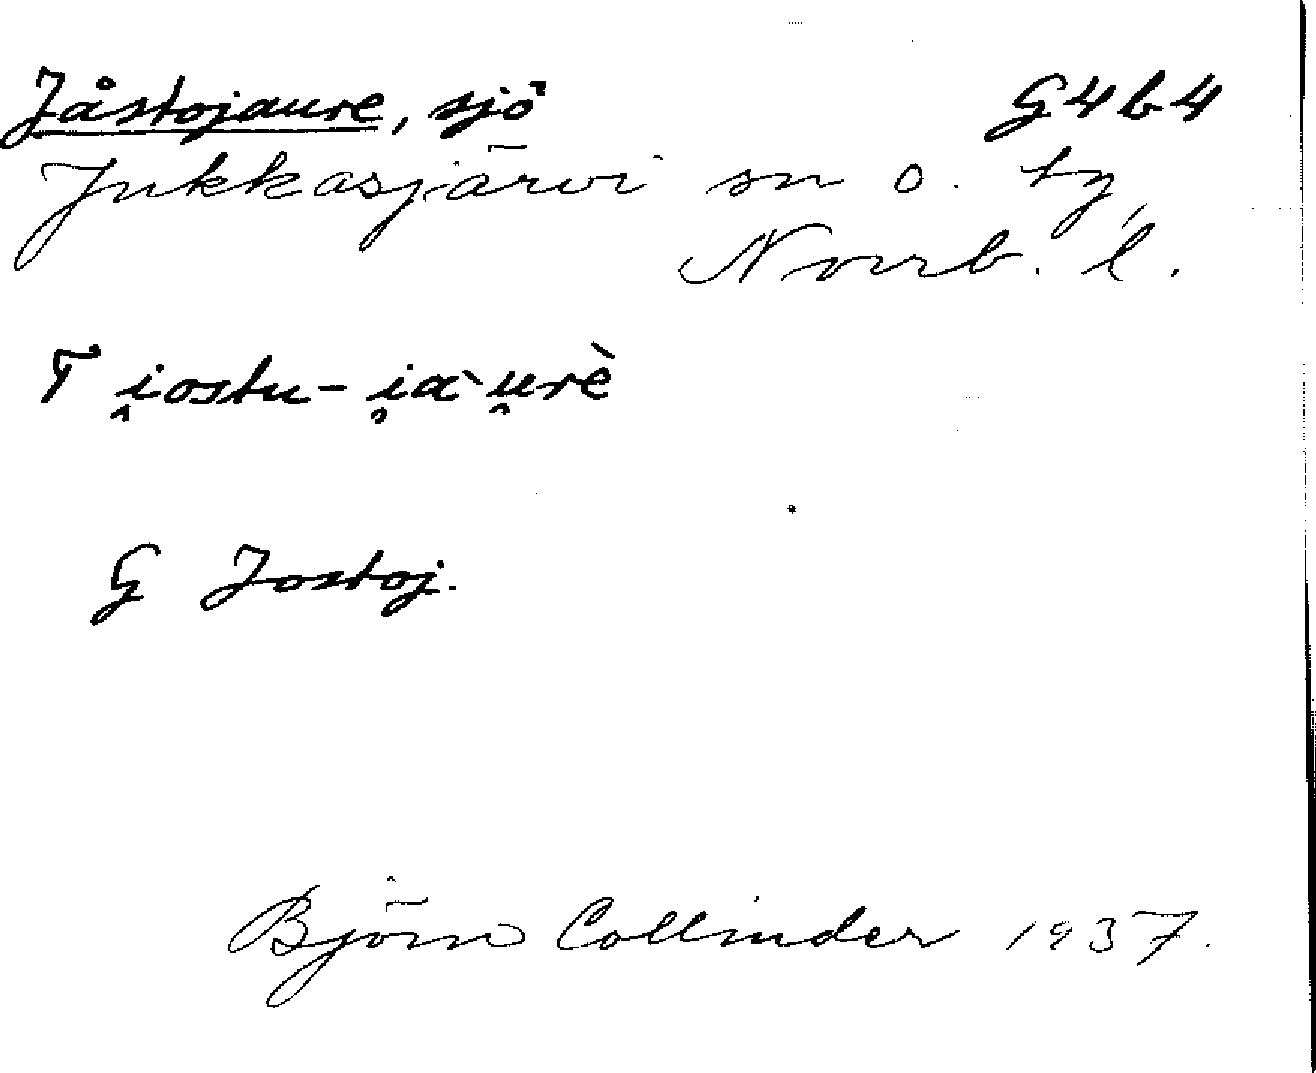 Jåstojaure, sjö G4b4
Jukkasjärvi sn o. tg,
Norrb. l.
T i̭ostu-i̭a`u̯rè
G Jostoj.
Björn Collinder 1937.